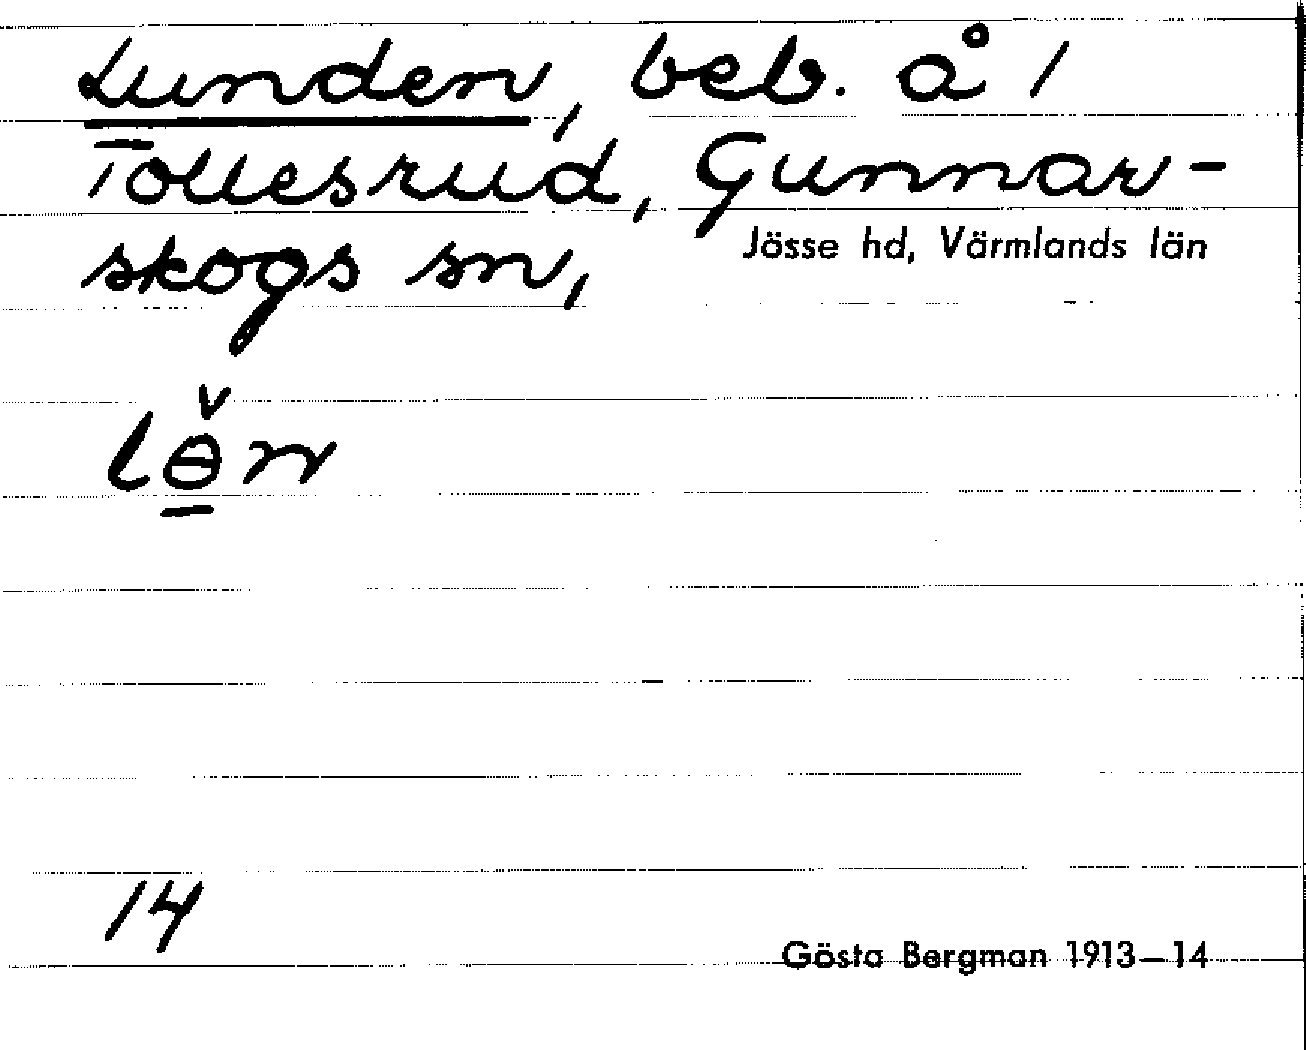 Lunden, beb. å 1
Tollesrud, Gunnar-
skogs sn,
Jösse hd, Värmlands län
lɵ̠̌n
14
Gösta Bergman 1913—14